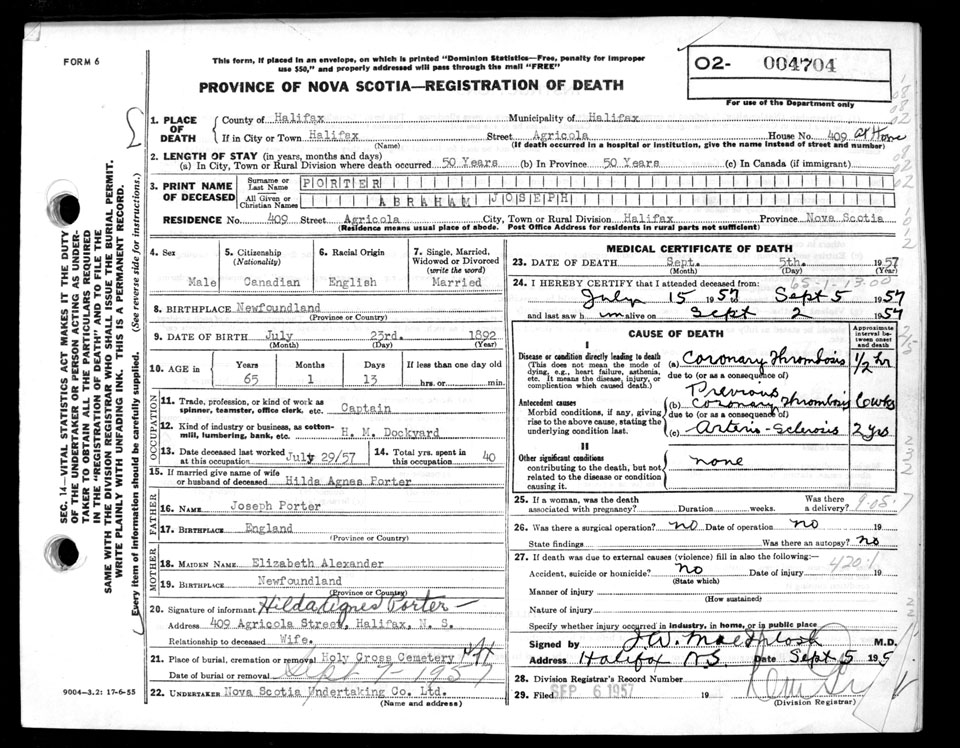 FORM 6
This form, if placed in an envelope, on which is printed "Dominion Statistics—Free, penalty for improper
use $50," and properly addressed will pass through the mail "FREE"
PROVINCE OF NOVA SCOTIA—REGISTRATION OF DEATH
O2- 004704
For use of the Department only
SEC. 14—VITAL STATISTICS ACT MAKES IT THE DUTY
OF THE UNDERTAKER OR PERSON ACTING AS UNDER-
TAKER TO OBTAIN ALL THE PARTICULARS REQUIRED
IN THE "REGISTRATION OF DEATH" AND TO FILE THE
SAME WITH THE DIVISION REGISTRAR WHO SHALL ISSUE THE BURIAL PERMIT.
WRITE PLAINLY WITH UNFADING INK. THIS IS A PERMANENT RECORD.
Every item of information should be carefully supplied. (See reverse side for instructions.)
1. PLACE OF DEATH
County of Halifax Municipality of Halifax
If in City or Town Halifax Street Agricola House No. 409 At Home
(Name) (If death occurred in a hospital or institution, give the name instead of street and number)
2. LENGTH OF STAY (in years, months and days)
(a) In City, Town or Rural Division where death occurred 50 Years (b) In Province 50 Years (c) In Canada (if immigrant)
3. PRINT NAME OF DECEASED
Surname or Last Name PORTER
All Given or Christian Names ABRAHAM JOSEPH
RESIDENCE No. 409 Street Agricola City, Town or Rural Division Halifax Province Nova Scotia
(Residence means usual place of abode. Post Office Address for residents in rural parts not sufficient)
4. Sex 5. Citizenship (Nationality) 6. Racial Origin 7. Single, Married, Widowed or Divorced (write the word)
Male Canadian English Married
8. BIRTHPLACE Newfoundland
(Province or Country)
9. DATE OF BIRTH July 23rd. 1892
(Month) (Day) (Year)
10. AGE Years Months Days If less than one day old
65 1 13 hrs. or min.
OCCUPATION
11. Trade, profession, or kind of work as
spinner, teamster, office clerk, etc. Captain
12. Kind of industry or business, as cotton-
mill, lumbering, bank, etc. H. M. Dockyard
13. Date deceased last worked at this occupation July 29/57 14. Total yrs. spent in this occupation 40
15. If married give name of wife
or husband of deceased Hilda Agnes Porter
FATHER
16. NAME Joseph Porter
17. BIRTHPLACE England
(Province or Country)
MOTHER
18. MAIDEN NAME Elizabeth Alexander
19. BIRTHPLACE Newfoundland
(Province or Country)
20. Signature of informant Hilda Agnes Porter
Address 409 Agricola Street, Halifax, N. S.
Relationship to deceased Wife.
21. Place of burial, cremation or removal Holy Cross Cemetery Hfx
Date of burial or removal Sept 7-1957
22. UNDERTAKER Nova Scotia Undertaking Co. Ltd.
(Name and address)
9004-3.2: 17-6-55
MEDICAL CERTIFICATE OF DEATH
23. DATE OF DEATH Sept. 5th. 1957
(Month) (Day) (Year)
65-1-13.00
24. I HEREBY CERTIFY that I attended deceased from:
July 15 1957 to Sept 5 1957
and last saw him alive on Sept 2 1957
CAUSE OF DEATH
Approximate interval between onset and death
I
Disease or condition directly leading to death
(This does not mean the mode of
dying, e.g., heart failure, asthenia,
etc. It means the disease, injury, or
complication which caused death.)
(a) Coronary Thrombosis 1/2 hr
due to (or as a consequence of)
Antecedent causes
Morbid conditions, if any, giving
rise to the above cause, stating the
underlying condition last.
Previous
(b) Coronary Thrombosis 6 wks
due to (or as a consequence of)
(c) Arterio-Sclerosis 2 yrs
II
Other significant conditions
contributing to the death, but not
related to the disease or condition
causing it.
none
25. If a woman, was the death
associated with pregnancy? Duration weeks. Was there a delivery?
26. Was there a surgical operation? no Date of operation no 19
State findings Was there an autopsy? no
27. If death was due to external causes (violence) fill in also the following:
420.1
Accident, suicide or homicide? No Date of injury 19
(State which)
Manner of injury
(How sustained)
Nature of injury
Specify whether injury occurred in industry, in home, or in public place
Signed by J.W. MacIntosh M.D.
Address Halifax NS Date Sept 5 195
28. Division Registrar's Record Number
29. Filed SEP 6 1957 19
(Division Registrar)